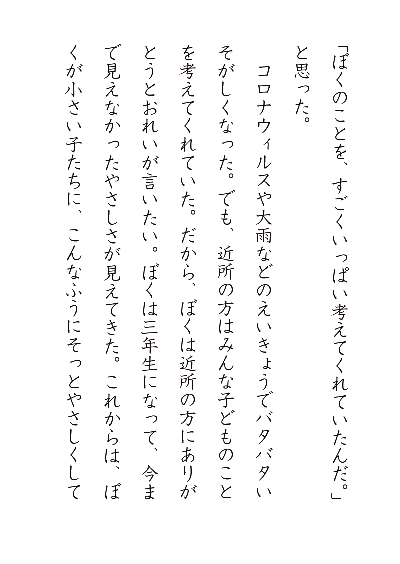 「ぼくのことを、すごくいっぱい考えてくれていたんだ。」
と思った。
　コロナウィルスや大雨などのえいきょうでバタバタい
そがしくなった。でも、近所の方はみんな子どものこと
を考えてくれていた。だから、ぼくは近所の方にありが
とうとおれいが言いたい。ぼくは三年生になって、今ま
で見えなかったやさしさが見えてきた。これからは、ぼ
くが小さい子たちに、こんなふうにそっとやさしくして